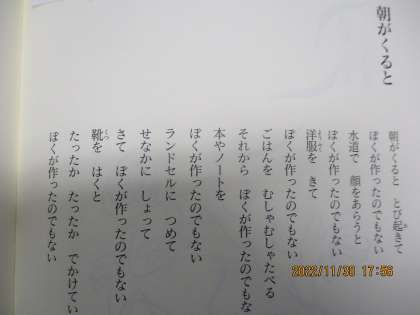 朝がくると
朝がくると とび起きて
ぼくが作ったのでもない
水道で 顔をあらうと
ぼくが作ったのでもない
洋服を きて
ぼくが作ったのでもない
ごはんを むしゃむしゃたべる
それから ぼくが作ったのでもな
本やノートを
ぼくが作ったのでもない
ランドセルに つめて
せなかに しょって
さて ぼくが作ったのでもない
靴を はくと
たったか たったか でかけてい
ぼくが作ったのでもない
2022/11/30 17:56